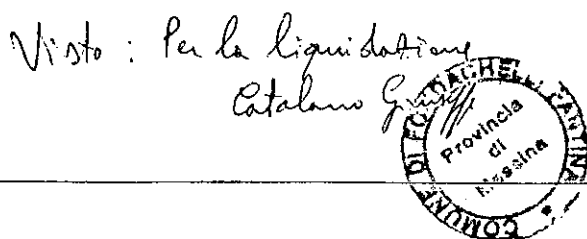 Visto : Per la liquidazione
Catalano
COMUNE DI FONDACHELLI FANTINA *
Provincia
di
Messina